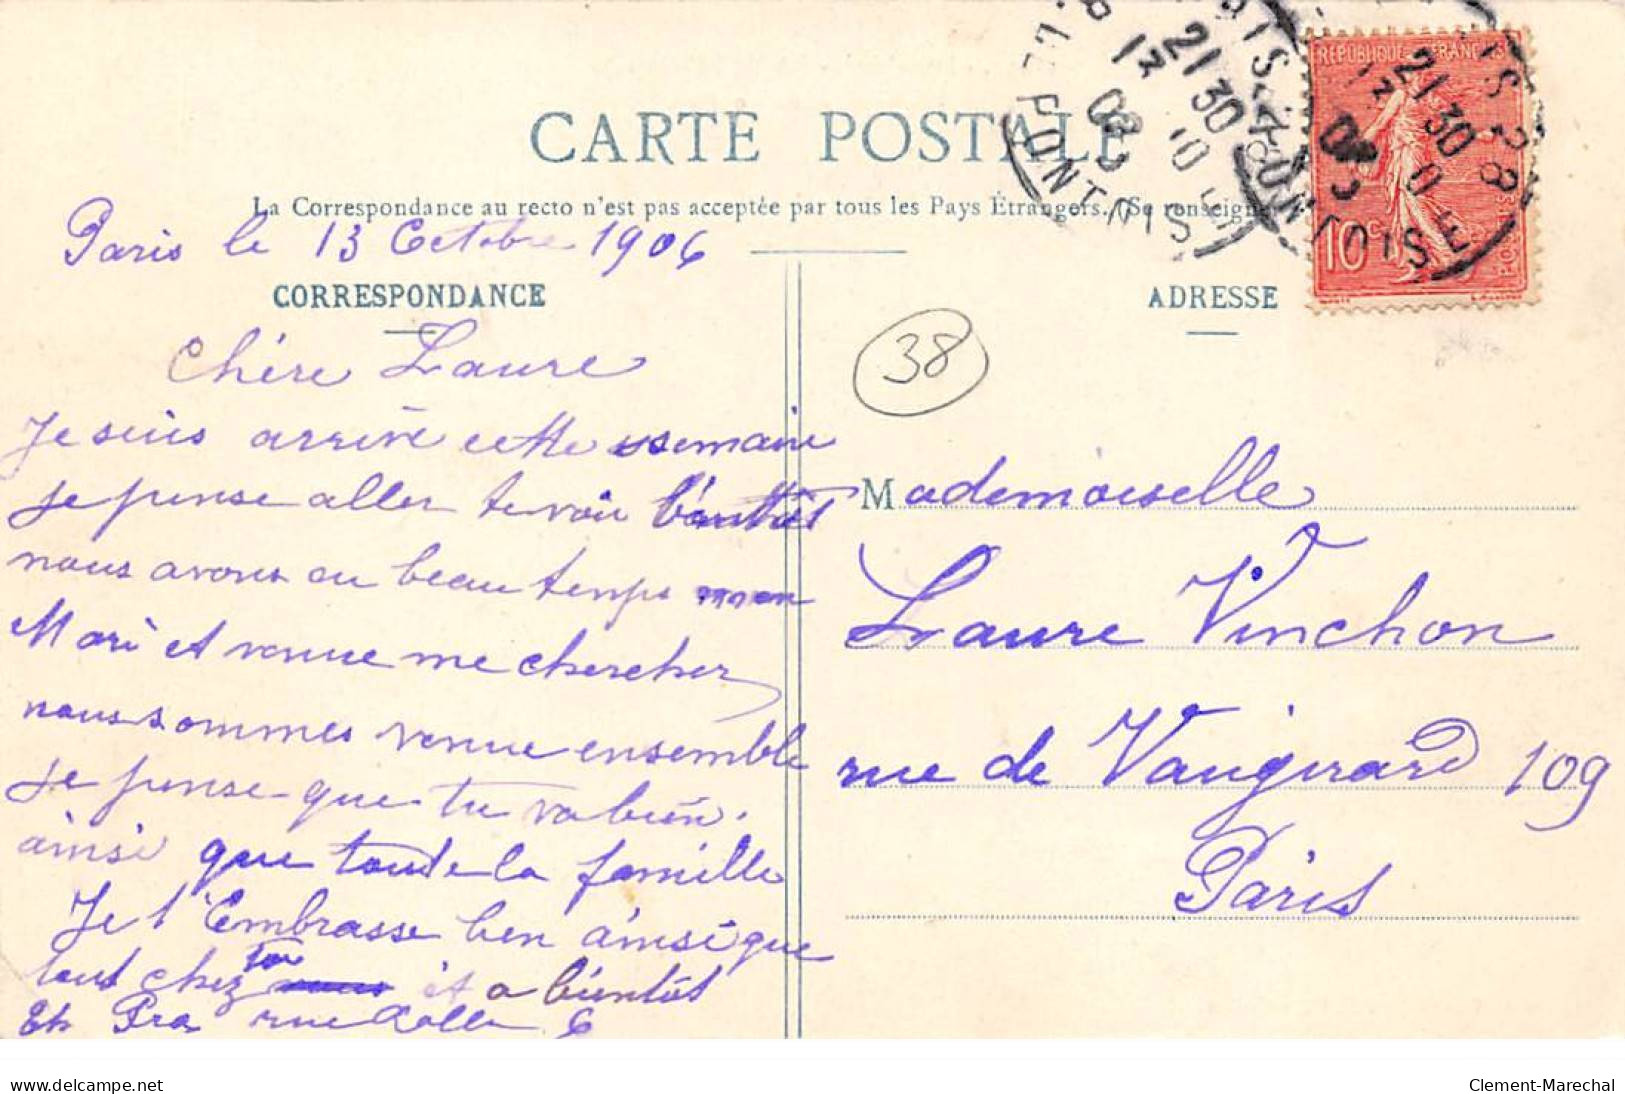 CARTE POSTALE
La Correspondance au recto n'est pas acceptée par tous les Pays Étrangers. (Se renseign
Paris le 13 Octobre 1906
CORRESPONDANCE
Chère Laure
Je suis arrivé cette semaine
je pense aller te voir bientôt
nous avons eu beau temps mon
Mari et venue me chercher
nous sommes venue ensemble
je pense que tu va bien.
ainsi que toute la famille
Je t'Embrasse bien ainsi que
tout chez toi et a bientôt
rue 6
ADRESSE
38
Mademoiselle
Laure Vinchon
rue de Vaugirard 109
Paris
REPUBLIQUE FRANÇAISE
10c
POSTES
21 30
13 10
PONTOISE
21 30
13
PONTOISE
delcampe.net
Clement-Marechal